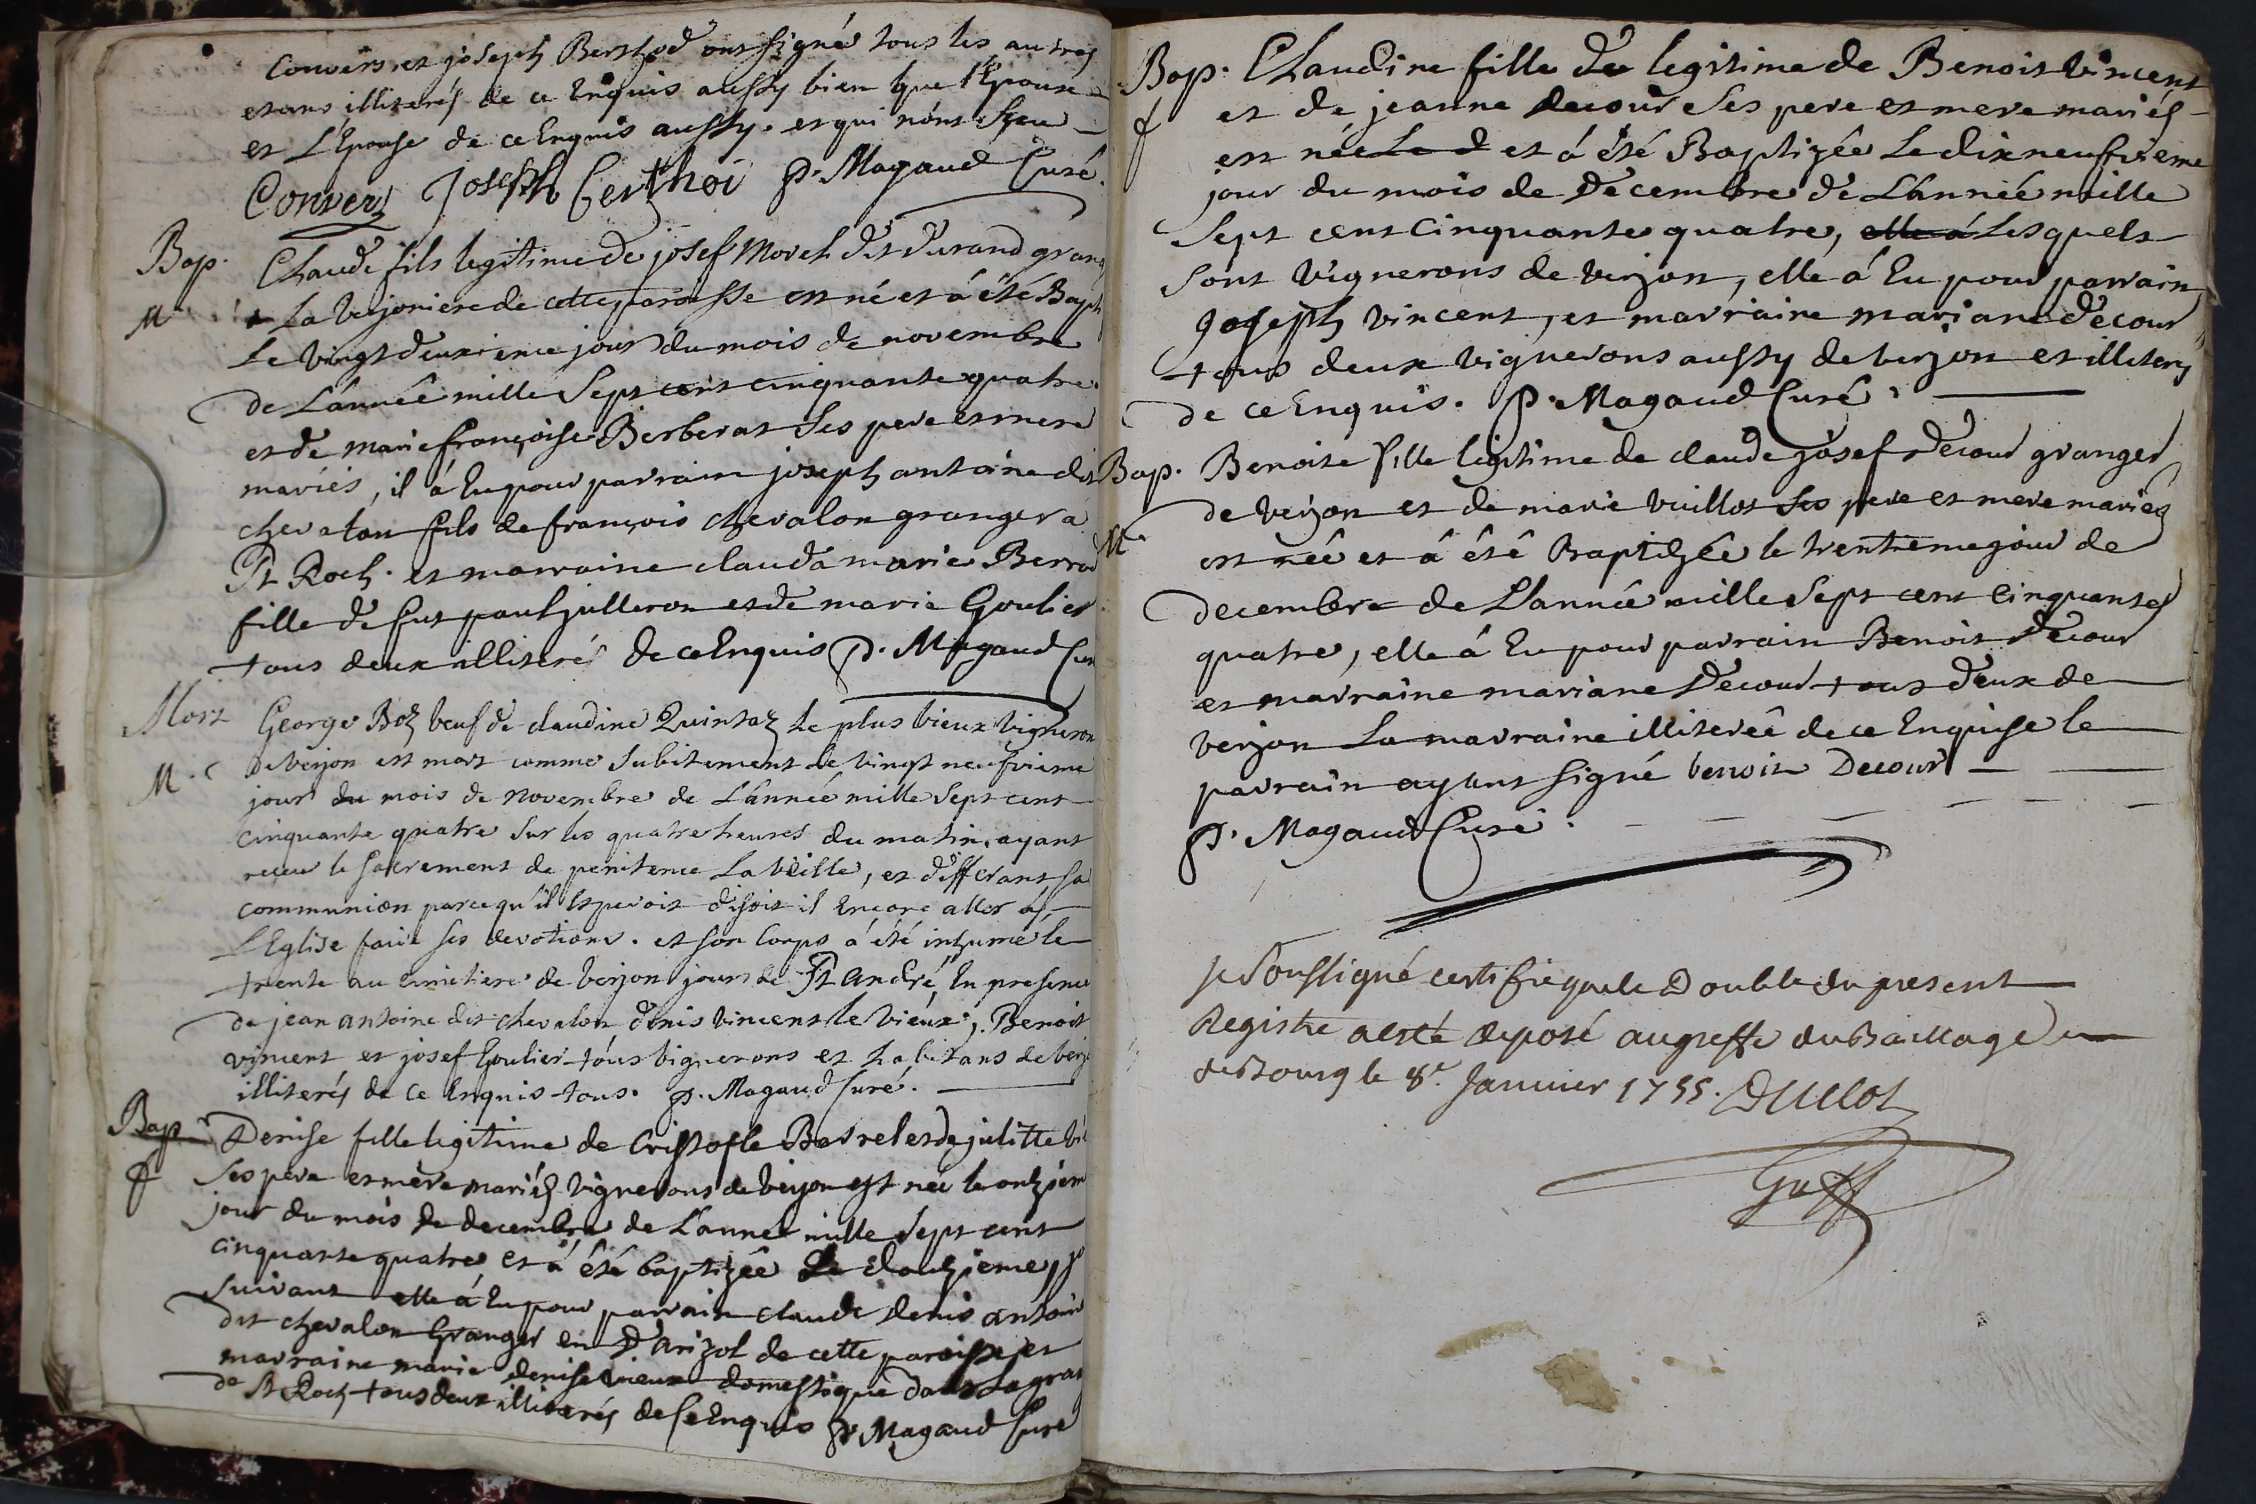 Convers et joseph Berthod ont signé tous les autres
etans illiterés de ce Enquis aussy bien que l'Epoux
et L'Epouse de ce Enquis aussy. et qui n'ont Sçeu
Convers Joseph Berthoi P. Magaud Curé.
Bap. Claude fils legitime de josef Morel dit durand grang
M a La verjoniere de cette paroisse est né et á été Bapt
Le vingt deuxieme jour du mois de novembre
de L'année mille Sept cent cinquante quatre
et de marie françoise Berberat Ses pere et mere
mariés, il á Eu pour parrain joseph antoine dit
chevalon fils de françois chevalon granger a
St Roch. et marraine clauda marie
fille de fut paul julleron et de marie Goulier
tous deux illiterés de ce Enquis P. Magaud Cur
Mort George Boz veuf de claudine Quinsaz le plus vieux vigneron
M. de verjon est mort comme Subitement le vingt neufvieme
jour du mois de novembre de L'année mille Sept cent
cinquante quatre Sur les quatre heures du matin, ayant
receu le Sacrement de penitence La veille, et differant sa
communion parcequ'il Esperoit disoit il Encore aller á
L'Eglise faire ses devotions. et son Corps á été inhumé le
trente au cimetiere de verjon jour de St andré, En presence
de jean antoine dit chevalon denis vincent le vieux, Benoit
vincent et josef Goulier tous vignerons et habitans de verj
illiterés de ce Enquis tous. P. Magaud Curé.
Bap. Denise fille legitime de Cristofle Borrel et de julitte
f Ses pere et mère mariés vignerons de verjon est née le onzièm
jour du mois de decembre de L'année mille Sept cent
cinquante quatre et á été baptizée Le douzieme
Suivant elle á Eu pour parrain claude denis antoin
dit chevalon Granger en d'arizol de cette paroisse, et
marraine marie denise vieux domestique dans La gran
de St Roch tous deux illiterés de ce Enquis P. Magaud Curé
Bap. Claudine fille de legitime de Benoit vincent
f et de jeanne decour Ses pere et mere mariés
est née Le d et á été Baptizée Le dix neufvieme
jour du mois de Decembre de L'année mille
Sept cent Cinquante quatre, elle á Lesquels
Sont vignerons de verjon, elle á Eu pour parrain
Joseph vincent, et marraine mariane decour
tous deux vignerons aussy de verjon et illiterés
de ce Enquis. P. Magaud Curé.
Bap. Benoite fille legitime de claude josef decour granger
M de verjon et de marie vuillot Ses pere et mere mariés
est née et á été Baptizée le trentieme jour de
decembre de L'année mille Sept cent Cinquante
quatre, elle á Eu pour parrain Benoit decour
et marraine mariane decour tous deux de
verjon La marraine illiterée de ce Enquise le
parrain ayant signé benoit Decour
P. Magaud Curé.
Je Soussigné certifie que le Double du present
Registre a esté deposé au greffe du Baillage
de Bourg le 8e. Janvier 1755.
Greff